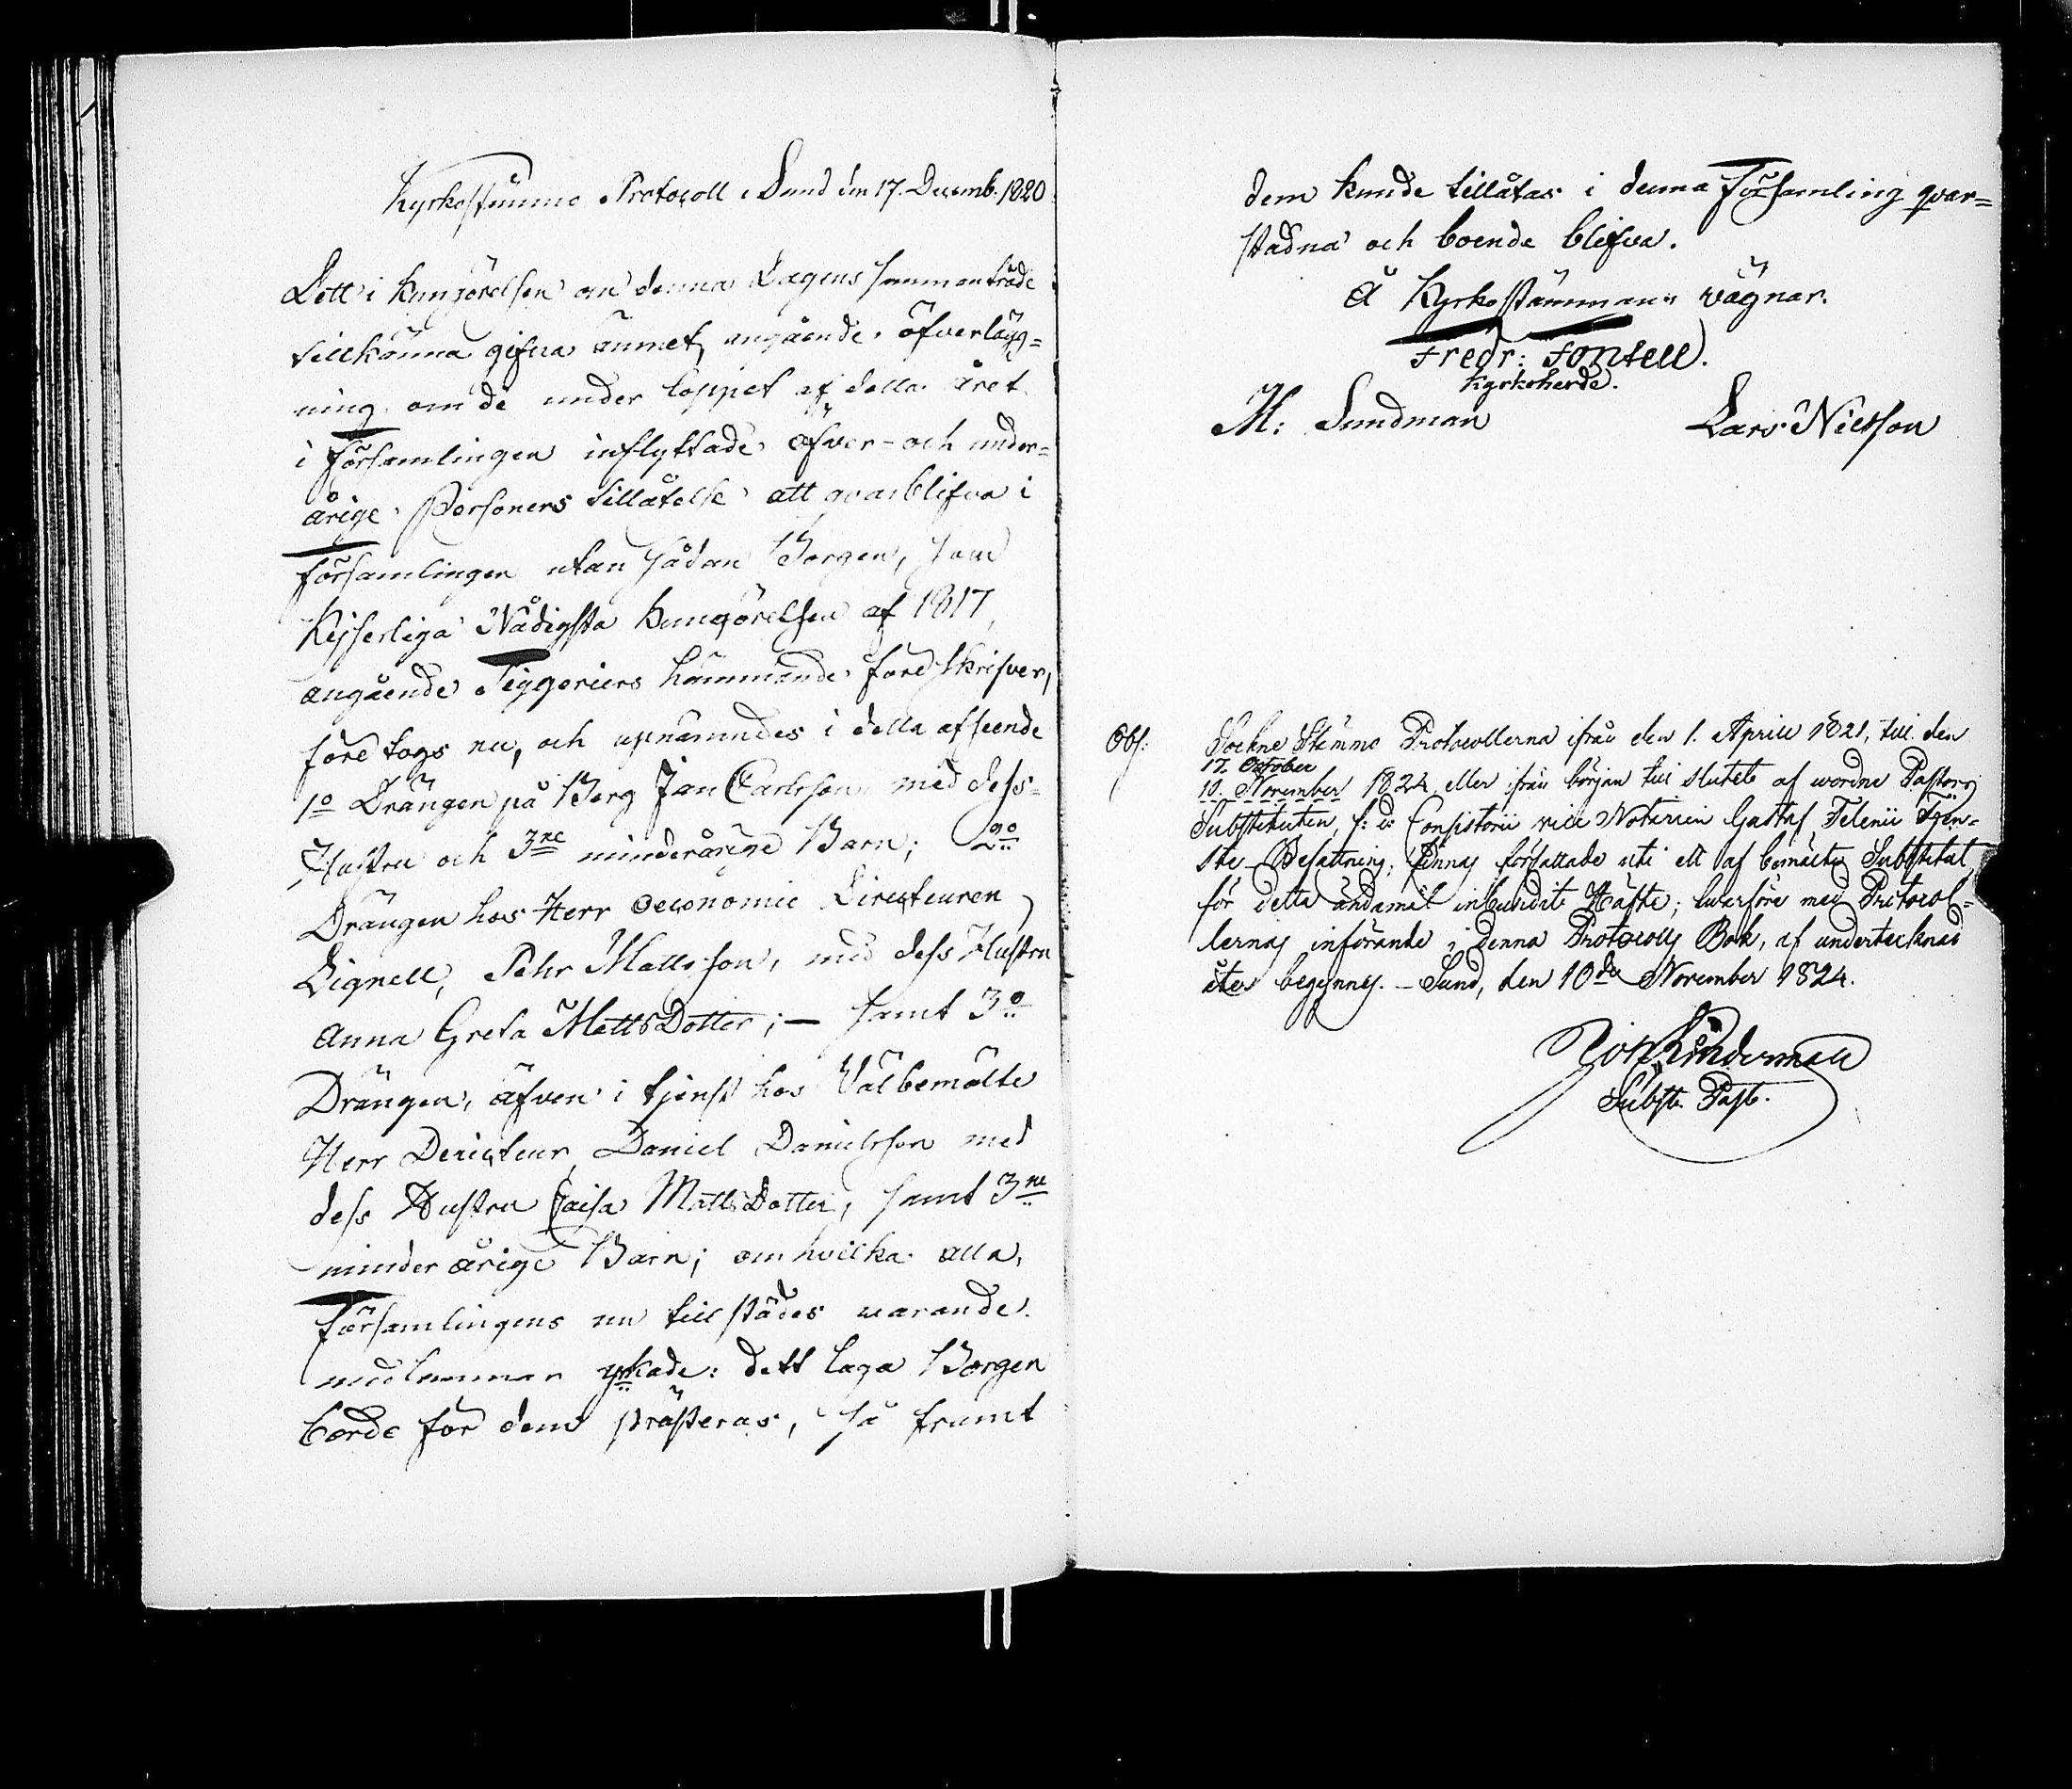 Kyrkostämmo Protocoll i Sund den 17. Decemb. 1820.
Dett i kungörelsen om denna Dagens sammanträde
tillkänna gifna ämnet, angående öfverlägg=
ning om de under loppet af detta året
i Församlingen inflyttade öfver- och under=
årige Personers tillåtelse att qvarblifva i
Församlingen utan sådan Borgen, som
Kejserliga Nådigsta Kungörelsen af 1817,
angående Tiggeriers hämmande föreskrifver,
företogs nu, och upnämndes i detta afseende
1o Drängen på Borg Jan Carlsson med dess
Hustru och 3ne minderårige Barn; 2o
Drängen hos Herr Oeconomie Directeuren
Lignell, Pehr Mattsson, med dess Hustru
Anna Greta MattsDotter; — samt 3o
Drängen, äfven i tjenst hos Välbemälte
Herr Directeur, Daniel Danielsson med
dess Hustru Caisa MattsDotter, samt 3ne
minderårige Barn; om hvilka alla,
Församlingens nu tillstädes warande
medlemmar yrkade: dett laga Borgen
borde för dem præsteras, så framt
dem kunde tillåtas i denna Församling qvar=
stadna och boende blifva.
Å Kyrkostämmans vägnar.
Fredr: Fontell.
Kyrkoherde.
M: Sundman Lars Nilsson
Obs: Sockne Stämmo Protocollerna ifrån den 1. Aprill 1821, till den
17. October
10. November 1824, eller ifrån början till slutet af wordne Pastors
Substituten, f: d: Consistorii vice Notarien Gustaf Telenii Tjen=
ste-Befattning, finnas författade uti ett af bemälte Substitut
för detta ändamål inbundit Häfte; hvarföre med Protocol=
lernas införande i denna Protocolls Bok, af undertecknad
åter begynnes. – Sund, den 10de November 1824.
Linderman
Subst. Past.